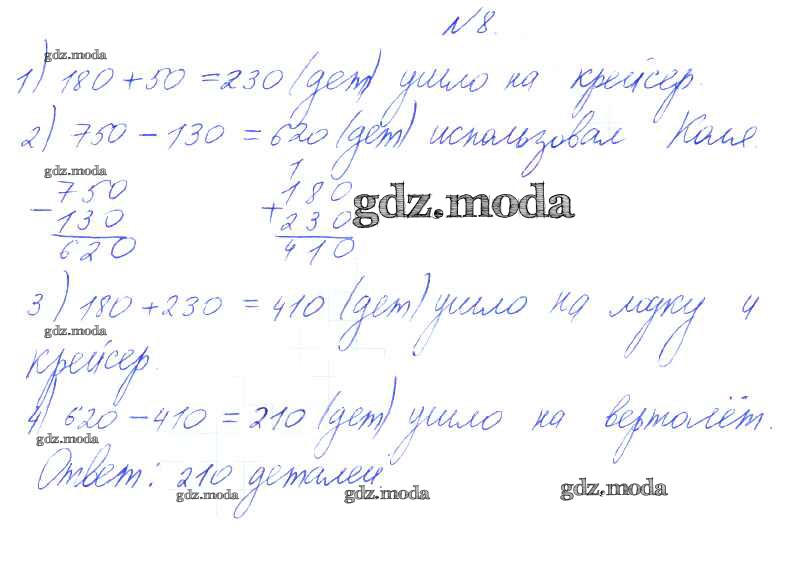 №8.
gdz.moda
1) 180 + 50 = 230 (дет) ушло на крейсер.
2) 750 - 130 = 620 (дет) использовал Коля.
gdz.moda
1
- 750 + 180
130 230
620 410
gdz.moda
3) 180 + 230 = 410 (дет) ушло на лодку и
gdz.moda
крейсер.
4) 620 - 410 = 210 (дет) ушло на вертолёт.
gdz.moda
Ответ: 210 деталей.
gdz.moda gdz.moda gdz.moda